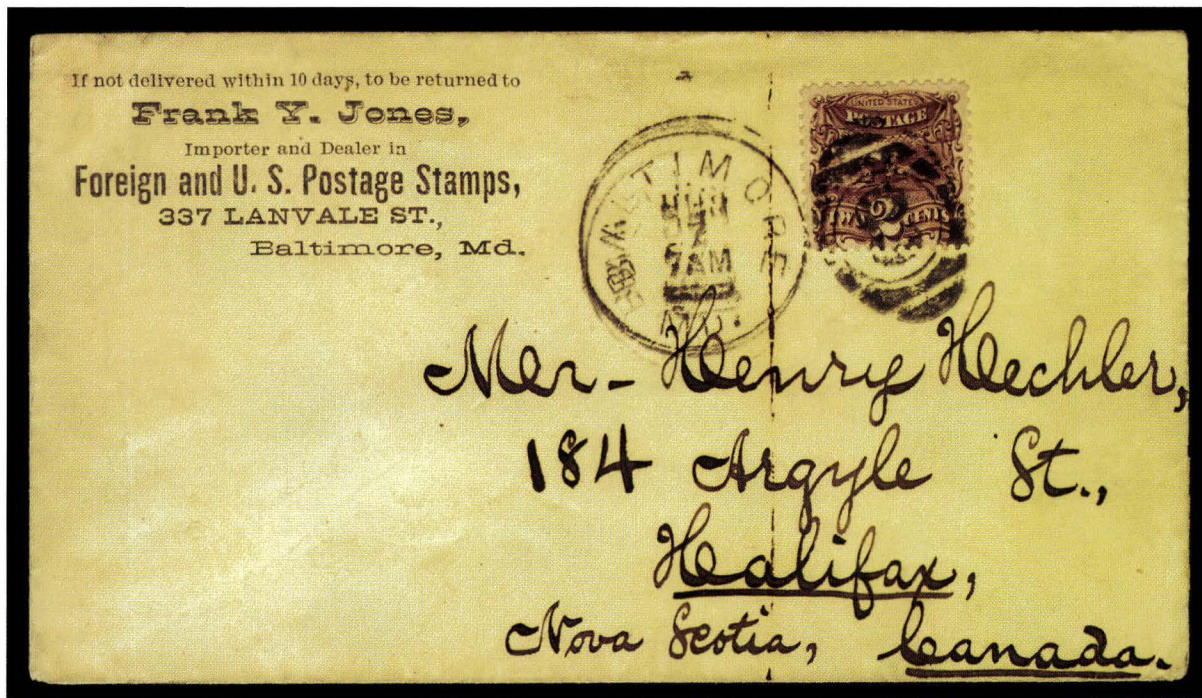 If not delivered within 10 days, to be returned to
Frank Y. Jones,
Importer and Dealer in
Foreign and U. S. Postage Stamps,
337 LANVALE ST.,
Baltimore, Md.
BALTIMORE
7AM
MD.
UNITED STATES
POSTAGE
TWO 2 CENTS
Mer- Henry Hechler,
184 Argyle St.,
Halifax,
Nova Scotia, Canada.